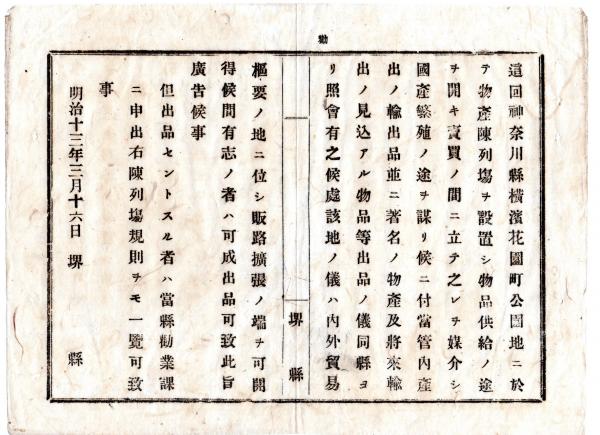 勸
這回神奈川縣橫濱花園町公園地ニ於
テ物產陳列塲ヲ設置シ物品供給ノ途
ヲ開キ賣買ノ間ニ立テ之レヲ媒介シ
國產繁殖ノ途ヲ謀リ候ニ付當管內產
出ノ輸出品並ニ著名ノ物產及將來輸
出ノ見込アル物品等出品ノ儀同縣ヨ
リ照會有之候處該地ノ儀ハ內外貿易
堺縣
樞要ノ地ニ位シ販路擴張ノ端ヲ可開
得候間有志ノ者ハ可成出品可致此旨
廣吿候事
但出品セントスル者ハ當縣勸業課
ニ申出右陳列塲規則ヲモ一覽可致
事
明治十三年三月十六日 堺縣